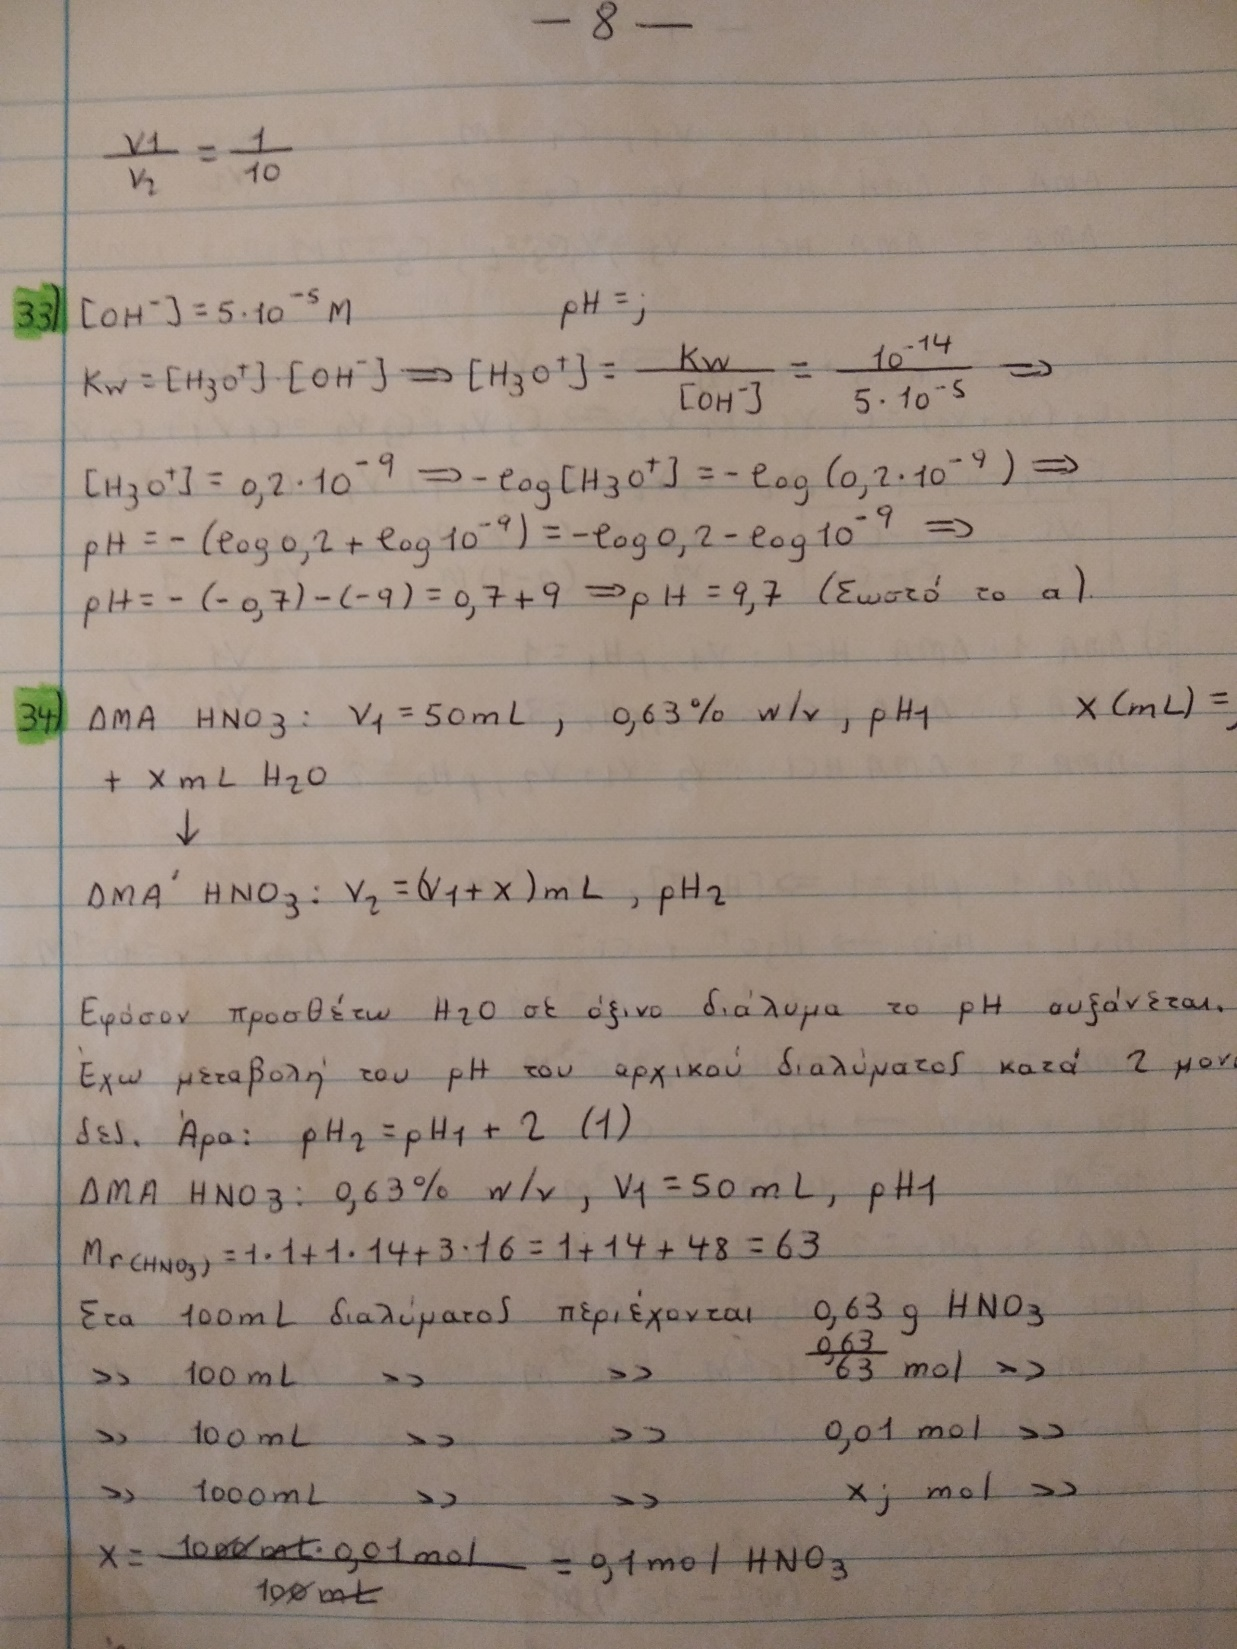 — 8 —
V1/V2 = 1/10
33) [OH⁻] = 5·10⁻⁵ M pH = ;
Kw = [H3O⁺]·[OH⁻] ⇒ [H3O⁺] = Kw/[OH⁻] = 10⁻¹⁴/5·10⁻⁵ ⇒
[H3O⁺] = 0,2·10⁻⁹ ⇒ -log[H3O⁺] = -log(0,2·10⁻⁹) ⇒
pH = -(log0,2 + log10⁻⁹) = -log0,2 - log10⁻⁹ ⇒
pH = -(-0,7)-(-9) = 0,7+9 ⇒ pH = 9,7 (Σωστό το α).
34) ΔΜΑ HNO3: V1 = 50mL, 0,63% w/v, pH1 x(mL) = ;
+ x mL H2O
↓
ΔΜΑ' HNO3: V2 = (V1+x)mL, pH2
Εφόσον προσθέτω H2O σε όξινο διάλυμα το pH αυξάνεται.
Έχω μεταβολή του pH του αρχικού διαλύματος κατά 2 μονά
δες. Άρα: pH2 = pH1 + 2 (1)
ΔΜΑ HNO3: 0,63% w/v, V1 = 50mL, pH1
Mr(HNO3) = 1·1+1·14+3·16 = 1+14+48 = 63
Στα 100mL διαλύματος περιέχονται 0,63 g HNO3
>> 100 mL >> >> 0,63/63 mol >>
>> 100 mL >> >> 0,01 mol >>
>> 1000mL >> >> x; mol >>
x = 1000mL·0,01mol/100mL = 0,1mol HNO3